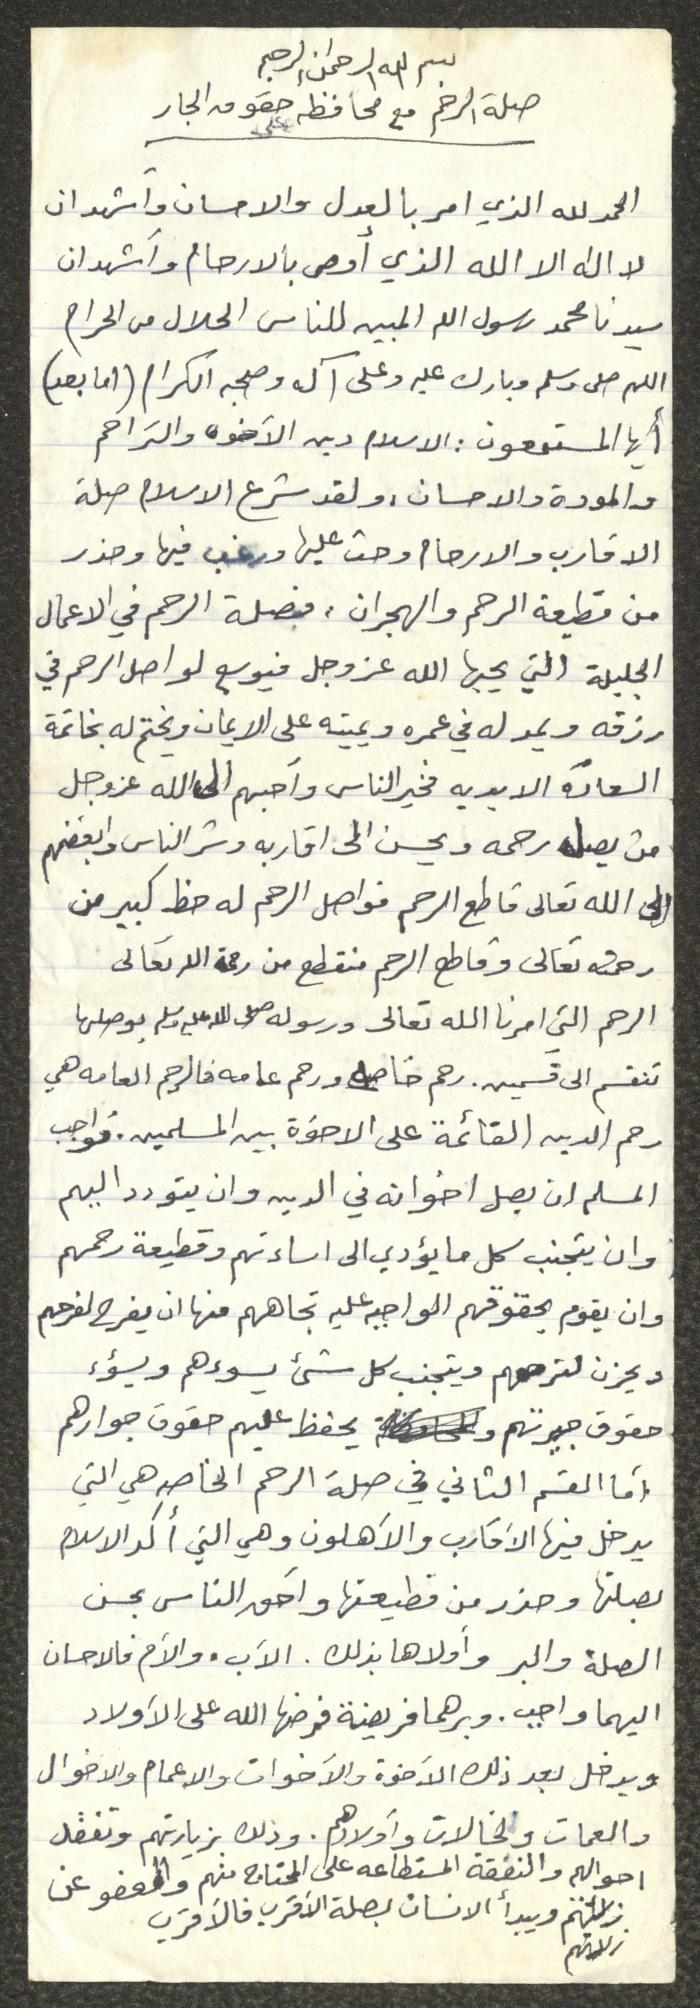 بسم الله الرحمن الرحيم
صلة الرحم مع محافظه على حقوق الجار
الحمد لله الذي امر بالعدل والاحسان وأشهد ان
لا اله الا الله الذي أوصى بالارحام وأشهد ان
سيدنا محمد رسول الله المبين للناس الحلال من الحرام
اللهم صلى وسلم وبارك عليه وعلى آله وصحبه الكرام (اما بعد)
أيها المستمعون : الاسلام دين الأخوه والتراحم
والمودة والاحسان ، ولقد شرع الاسلام صلة
الاقارب والارحام وحث عليها ورغب فيها وحذر
من قطيعة الرحم والهجران ، فصلة الرحم في الاعمال
الجليلة التي يحبها الله عز وجل فيوسع لواصل الرحم في
رزقه ويمد له في عمره ويميته على الايمان ويختم له بخاتمة
السعادة الابديه فخير الناس وأحبهم الى الله عز وجل
من يصل رحمه ويحسن الى اقاربه وشر الناس وابغضهم
الى الله تعالى قاطع الرحم فواصل الرحم له حظ كبير من
رحمته تعالى وقاطع الرحم منقطع من رحمة الله تعالى
الرحم التي امرنا الله تعالى ورسوله صلى الله عليه وسلم بوصلها
تنقسم الى قسمين . رحم خاصه ورحم عامه فالرحم العامه هي
رحم الدين القائمة على الاخوة بين المسلمين . فواجب
المسلم ان يصل اخوانه في الدين وان يتودد اليهم
وان يتجنب كل ما يؤدي الى اساءتهم وقطيعة رحمهم
وان يقوم بحقوقهم الواجبه عليه تجاههم منها ان يفرح لفرحهم
ويحزن لترحهم ويتجنب كل شئ يسوءهم ويسؤء
حقوق جيرتهم و يحفظ عليهم حقوق جوارهم
أما القسم الثاني في صلة الرحم الخاصه هي التي
يدخل فيها الأقارب والأهلون وهي التي أكد الاسلام
بصلتها وحذر من قطيعتها وأحق الناس بحسن
الصلة والبر وأولاها بذلك . الأب . والأم فالاحسان
اليهما واجب . وبرهما فريضة فرضها الله على الأولاد
ويدخل بعد ذلك الأخوة والأخوات والاعمام والاخوال
والعمات والخالات وأولادهم . وذلك بزيارتهم وتفقد
احوالهم والنفقة المستطاعه على المحتاج منهم والعفو عن
زلاتهم ويبدأ الانسان بصلة الأقرب فالأقرب
زلاتهم